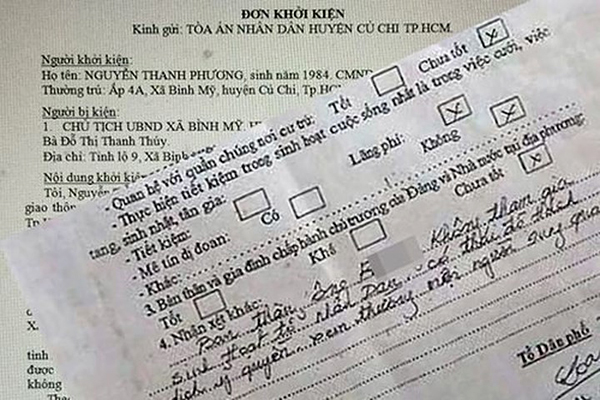 ĐƠN KHỞI KIỆN
Kính gửi: TÒA ÁN NHÂN DÂN HUYỆN CỦ CHI TP.HCM.
Người khởi kiện:
Họ tên: NGUYỄN THANH PHƯƠNG, sinh năm 1984. CMND
Thường trú: Ấp 4A, Xã Bình Mỹ, huyện Củ Chi, Tp.HCM
Người bị kiện:
1. CHỦ TỊCH UBND XÃ BÌNH MỸ,
Bà Đỗ Thị Thanh Thúy.
Địa chỉ: Tỉnh lộ 9, Xã Bình
Nội dung khởi kiện
Tôi, Nguyễn
giao thôn
X.
tinh
được
không
- Quan hệ với quần chúng nơi cư trú: Tốt Chưa tốt
- Thực hiện tiết kiệm trong sinh hoạt cuộc sống nhất là trong việc cưới, việc
tang, sinh nhật, tân gia:
- Tiết kiệm: Lãng phí:
- Mê tín dị đoan: Có Không
- Khác:
3. Bản thân và gia đình chấp hành chủ trương của Đảng và Nhà nước tại địa phương:
Tốt Khá Chưa tốt
4. Nhận xét khác:
Bản thân ông B Không tham gia
sinh hoạt tổ nhân dân - có thái độ thách
xem thường mọi người xung qua
Tổ Dân phố